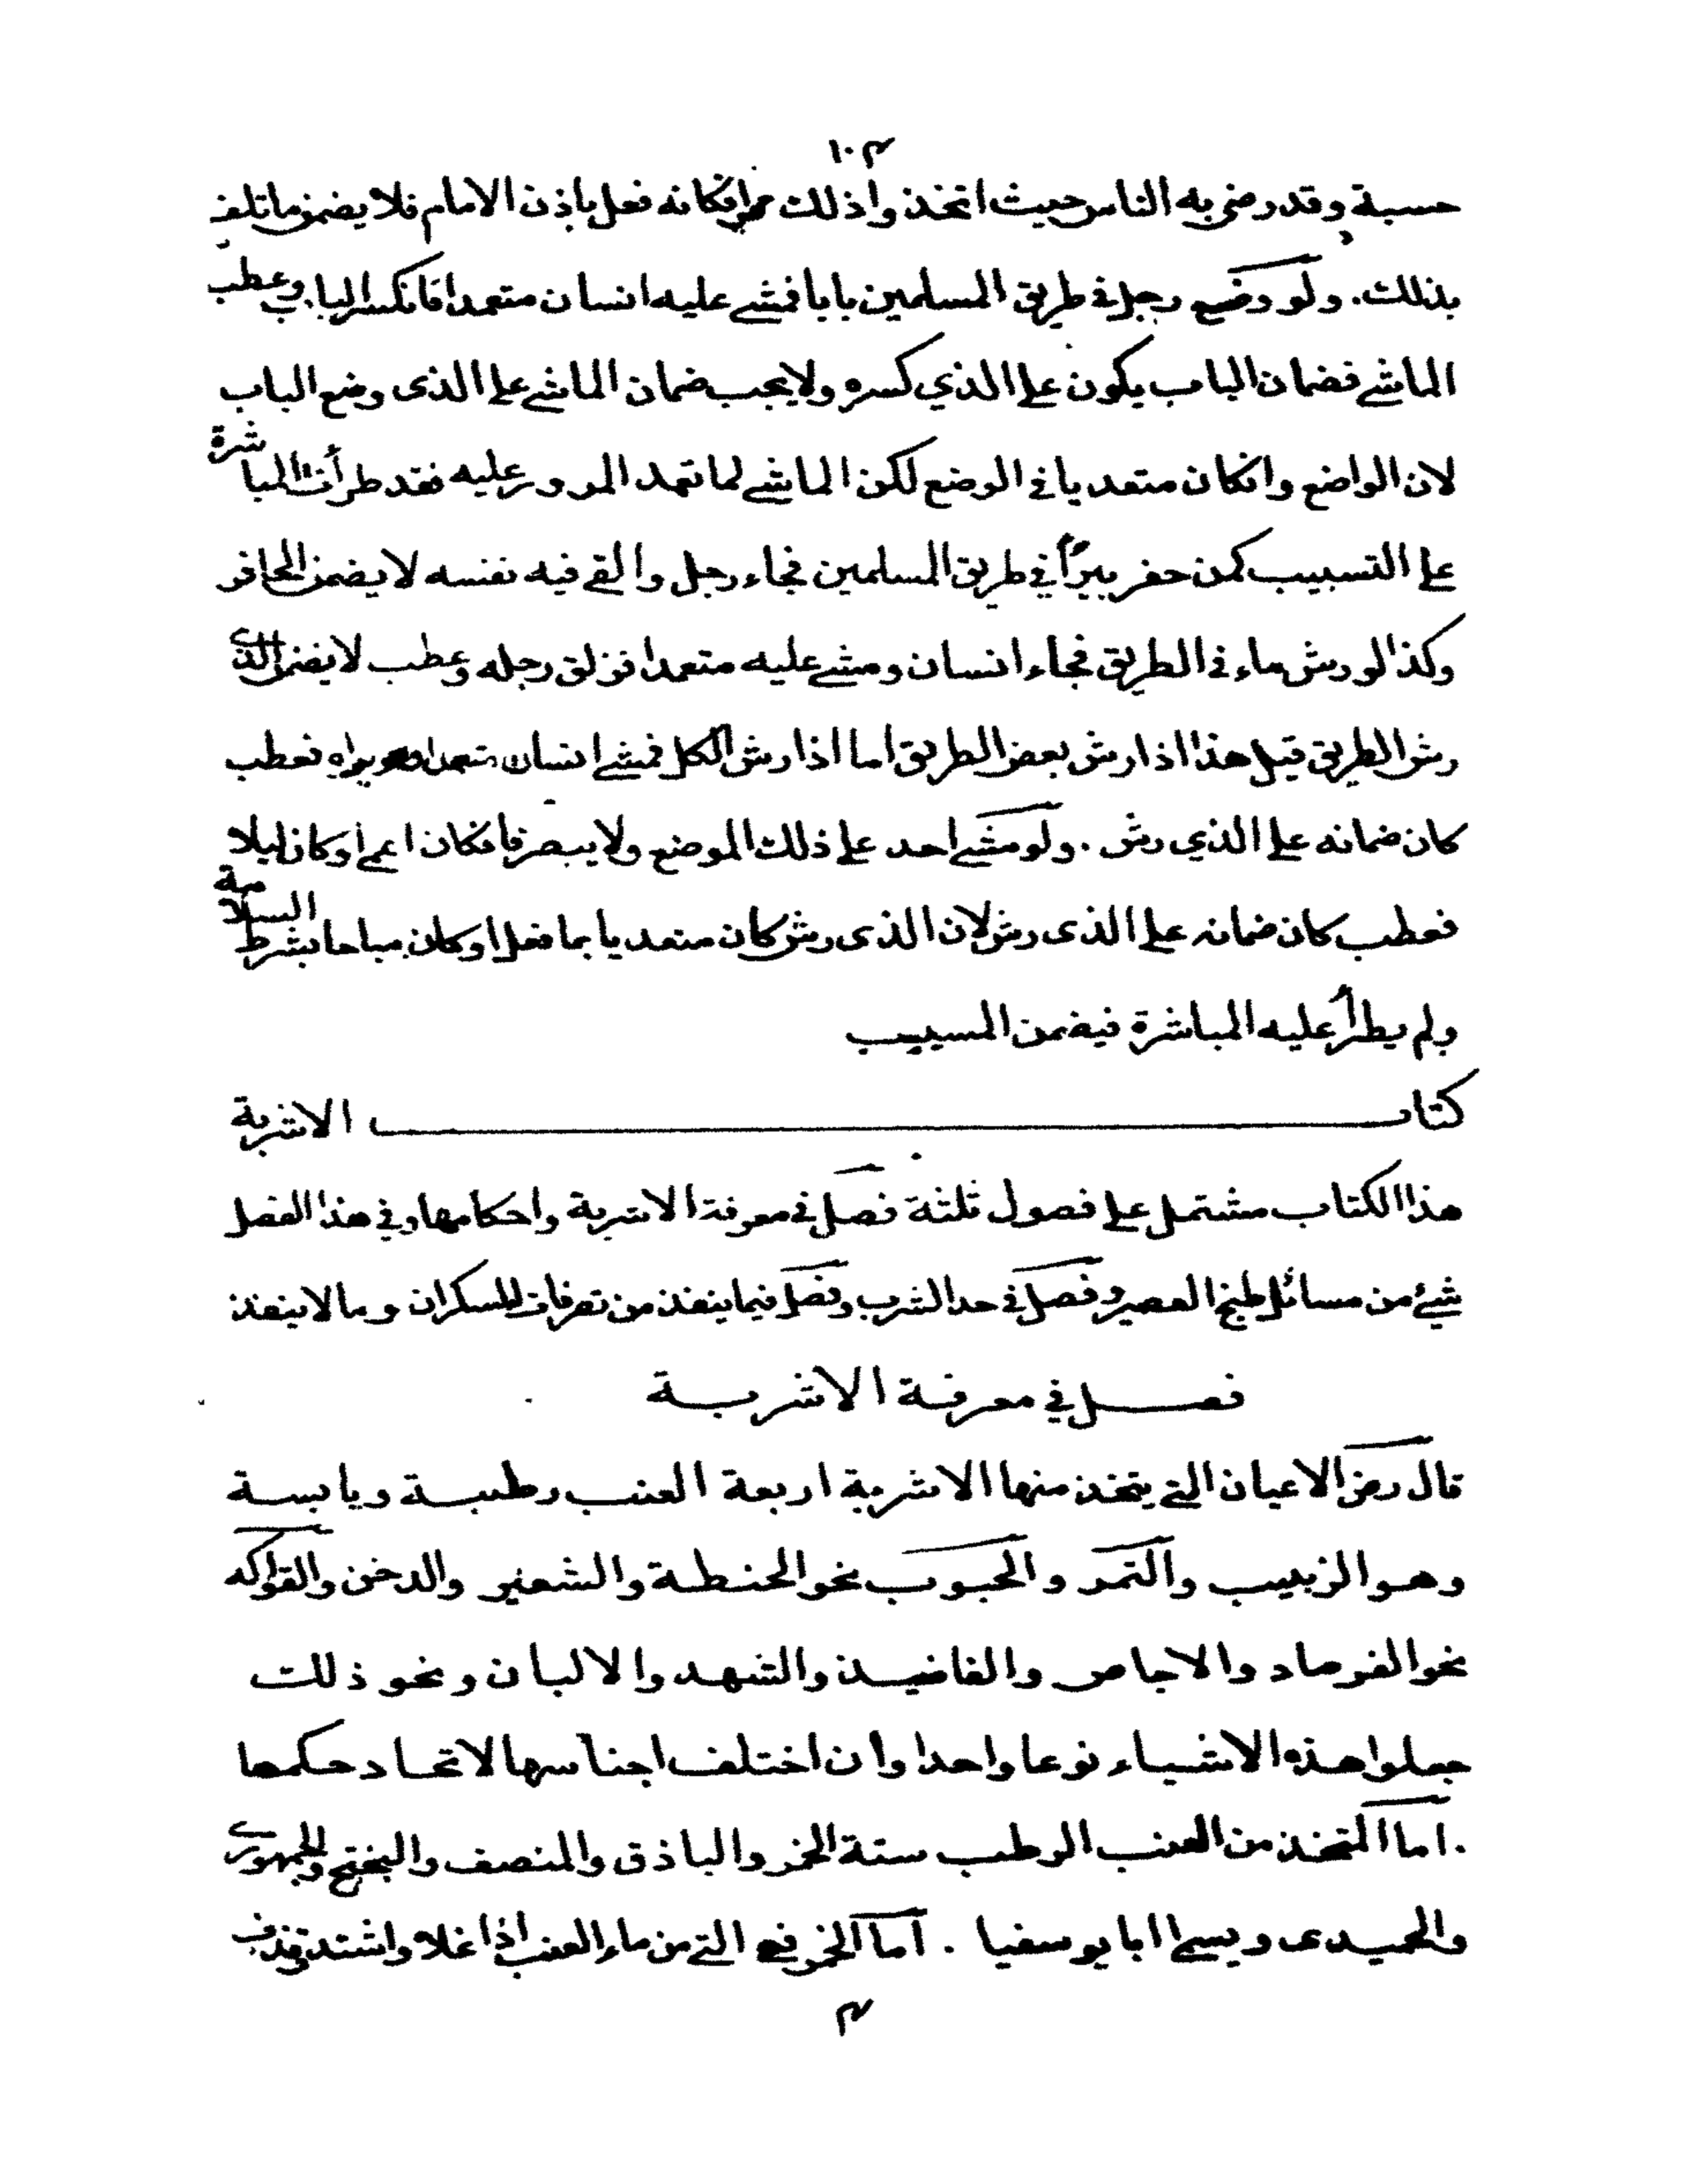 ١٠٣
حسبة وقد رضي به الناس حيث اتخذوا ذلك ممرا فكانه فعل باذن الامام فلا يضمن ما تلف
بذلك. ولو وضع رجل في طريق المسلمين بابا فمشى عليه انسان متعمدا فانكسر الباب وعطب
الماشي فضمان الباب يكون على الذي كسره ولا يجب ضمان الماشي على الذى وضع الباب
لان الواضع وانكان متعديا في الوضع لكن الماشي لما تعمد المرور عليه فقد طرأت المباشرة
على التسبيب كمن حفر بيرًا في طريق المسلمين فجاء رجل والقى فيه نفسه لا يضمن الحافر
وكذا لو رش ماء في الطريق فجاء انسان ومشى عليه متعمدا فزلق رجله وعطب لا يضمن الذي
رش الطريق قيل هذا اذا رش بعض الطريق اما اذا رش الكل فمشى انسان متعمدا وهو يراه فعطب
كان ضمانه على الذي رش . ولو مشى احد على ذلك الموضع ولا يبصر فانكان اعمى اوكان ليلا
فعطب كان ضمانه على الذى رش لان الذى رش كان متعديا بما فعل اوكان مباحا بشرط السلامة
ولم يطرأ عليه المباشرة فيضمن المسبب
كتاب الاشربة
هذا الكتاب مشتمل على فصول ثلثة فصل في معرفة الاشربة واحكامها وفي هذا الفصل
شيئ من مسائل طبخ العصير وفصل في حد الشرب وفصل فيما ينفذ من تصرفات السكران وما لا ينفذ
فصل في معرفة الاشربة
قال رض الاعيان التي يتخذ منها الاشربة اربعة العنب رطبة ويابسة
وهو الزبيب والتمر والحبوب نحو الحنطة والشعير والدخن والفواكه
نحو الفرصاد والاجاص والفانيذ والشهد والالبان ونحو ذلك
جعلوا هذه الاشياء نوعا واحدا وان اختلف اجناسها لاتحاد حكمها
. اما المتخذ من العنب الرطب ستة الخمر والباذق والمنصف والبختج والجمهوري
والحميدى ويسمى ابا يوسفيا . اما الخمر فهي التي من ماء العنب اذا غلا واشتد وقذف